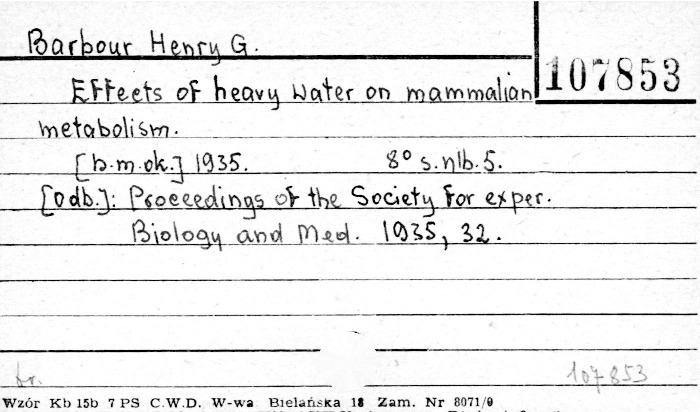 Barbour Henry G.
107853
Effects of heavy water on mammalian
metabolism.
[b.m.ok.] 1935. 8° s.nlb. 5.
[Odb.]: Proceedings of the Society for exper.
Biology and Med. 1935, 32.
107853
Wzór Kb 15b 7 PS C.W.D. W-wa Bielańska 18 Zam. Nr 8071/9